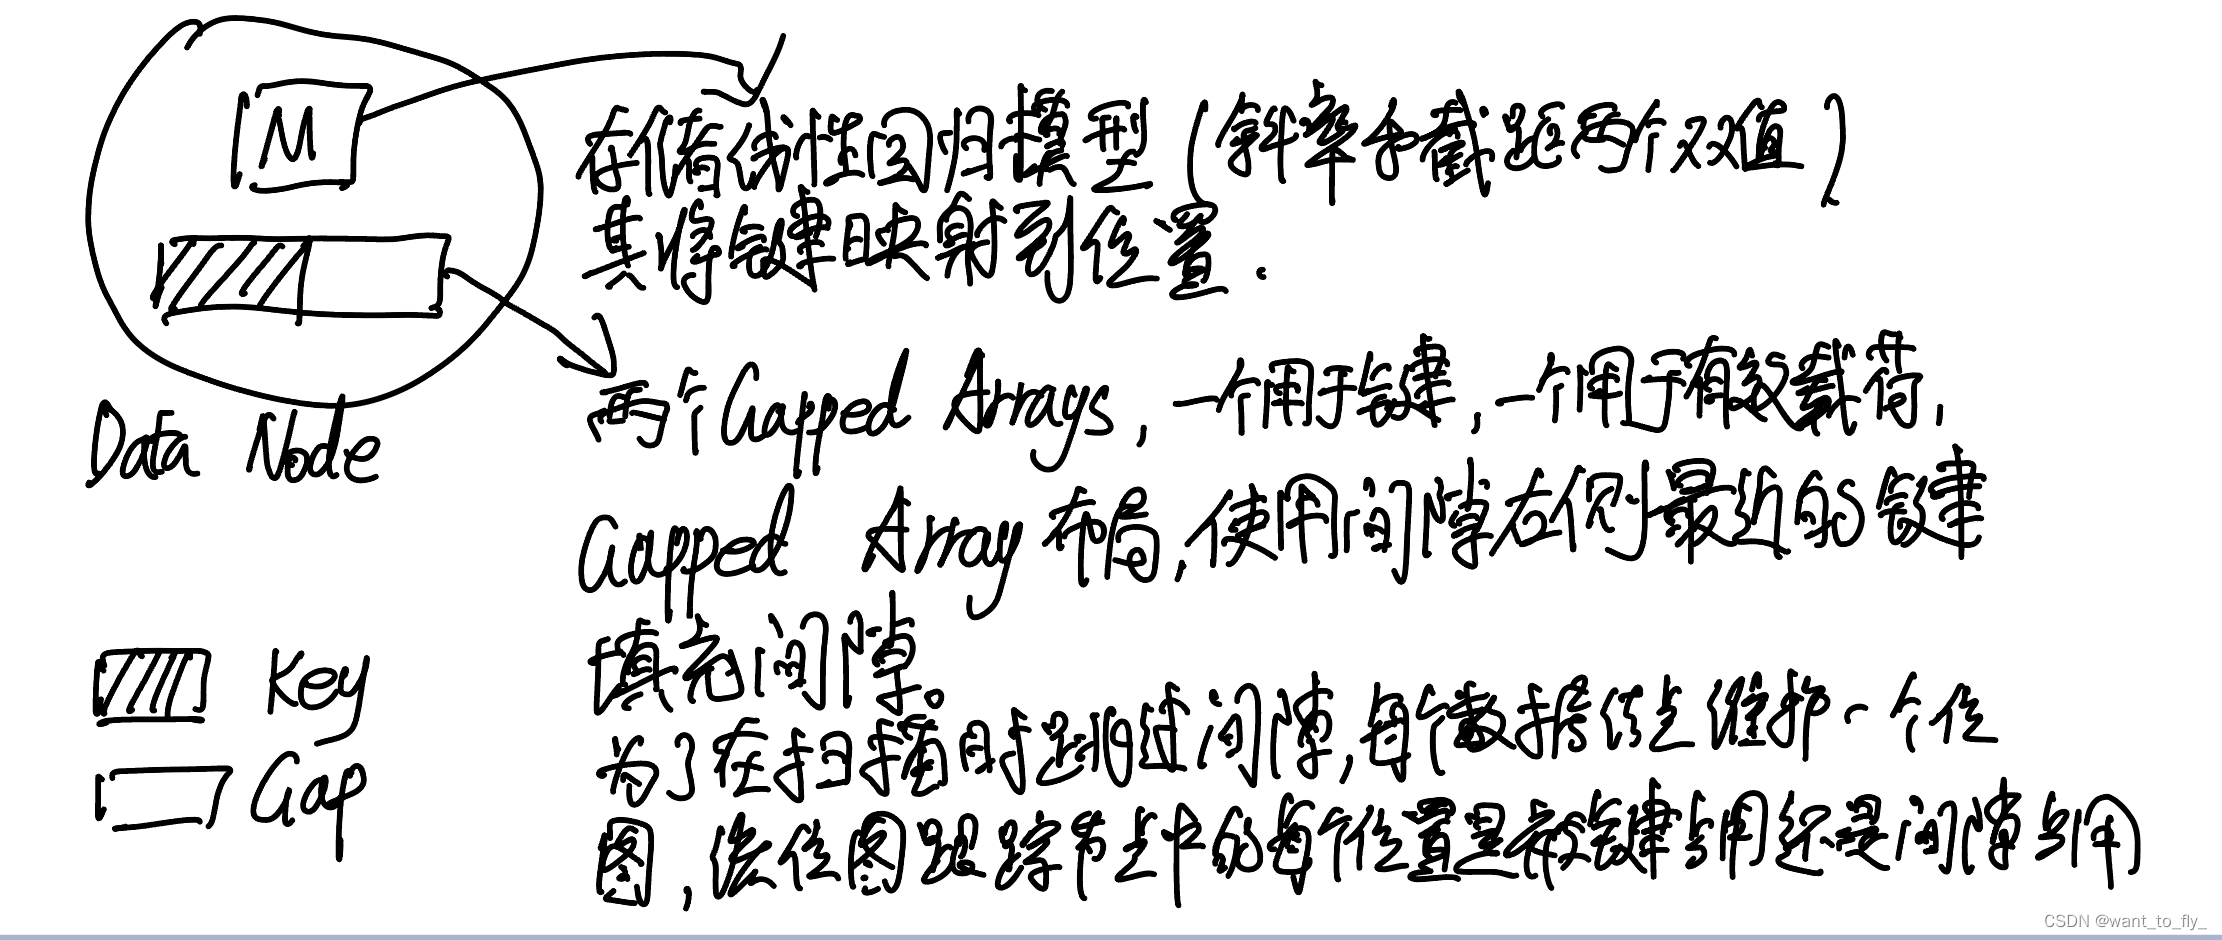 M
存储线性回归模型(斜率和截距两个双值)
其将键映射到位置.
两个Gapped Arrays,一个用于键,一个用于有效载荷,
Data Node
Gapped Array布局,使用间隙右侧最近的键
填充间隙。
Key
为了在扫描时跳过间隙,每个数据结点维护一个位
Gap
图,该位图跟踪节点中的每个位置是被键占用还是间隙占用
CSDN @want_to_fly_